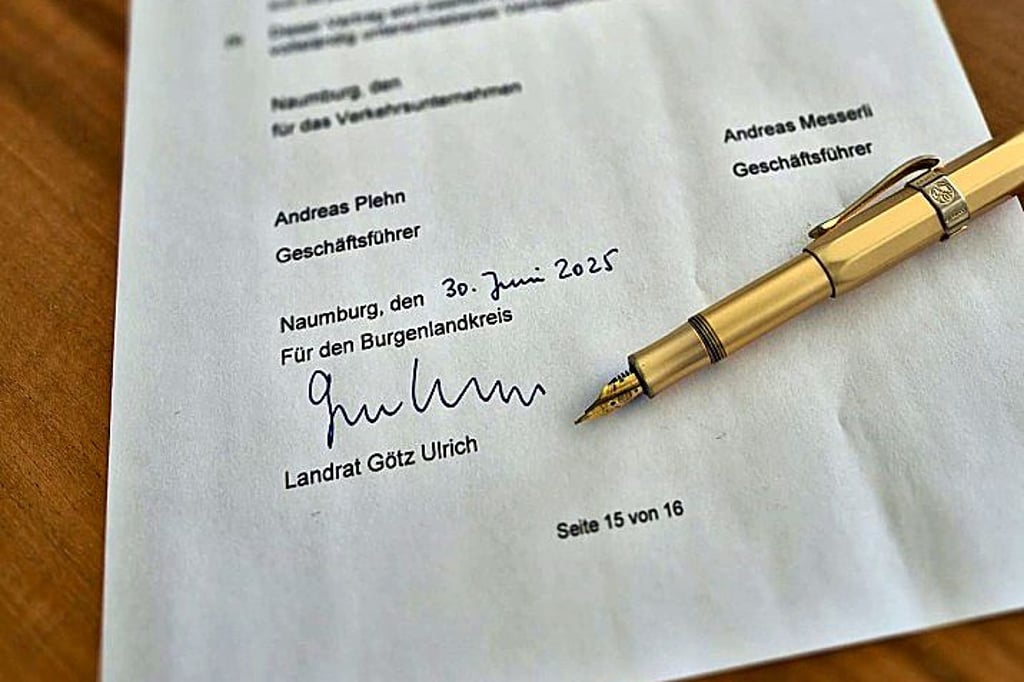 Dieser Vertrag wird
vollständig unterschriebenes
Naumburg, den
für das Verkehrsunternehmen
Andreas Messerli
Geschäftsführer
Andreas Plehn
Geschäftsführer
Naumburg, den 30. Juni 2025
Für den Burgenlandkreis
Landrat Götz Ulrich
Seite 15 von 16